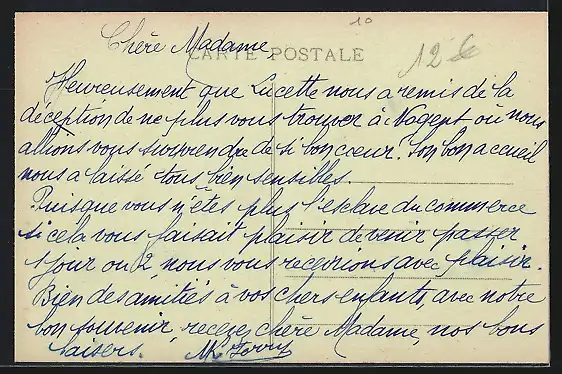 10
Chère Madame
CARTE POSTALE
12 €
Heureusement que Lucette nous a remis de la
déception de ne plus vous trouver à Nogent où nous
allions vous surprendre de si bon cœur. Son bon accueil
nous a laissé tous bien sensibles.
Puisque vous n'êtes plus l'esclave du commerce
si cela vous faisait plaisir de venir passer
1 jour ou 2, nous vous recevrions avec plaisir.
Bien des amitiés à vos chers enfants, avec notre
bon souvenir, recevez chère Madame, nos bons
baisers.